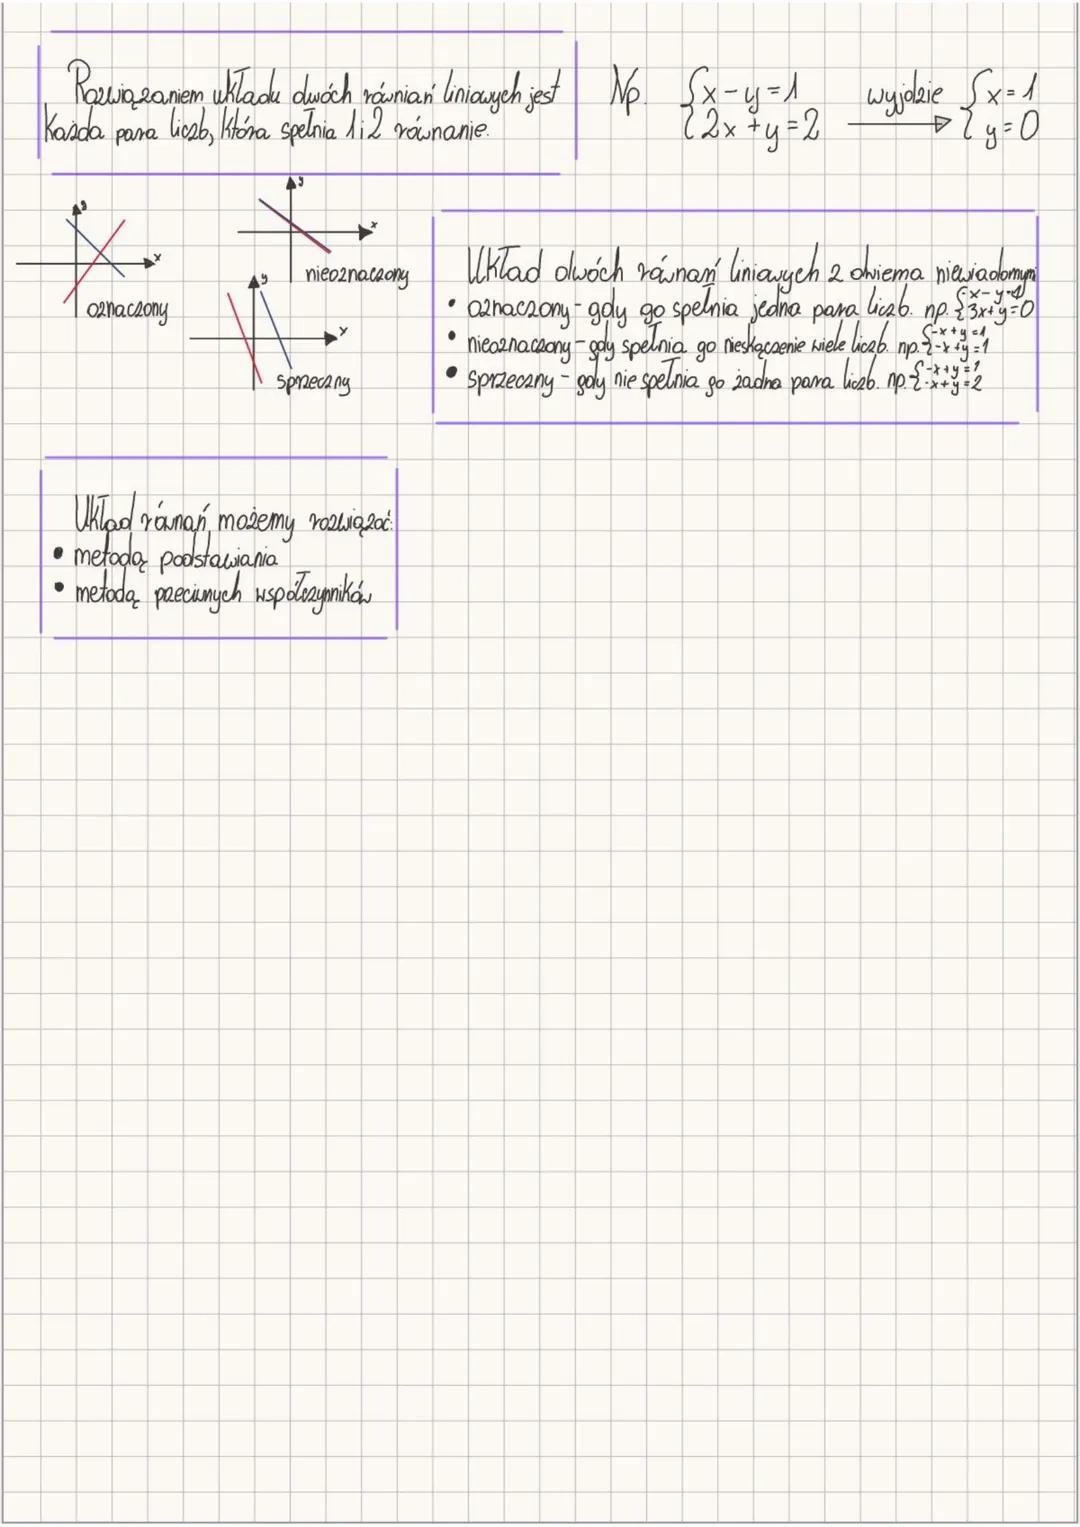 Rozwiązaniem układu dwóch równiań liniowych jest
każda para liczb, która spełnia 1 i 2 równanie.
Np. {x-y=1
{2x+y=2
wyjdzie
{x=1
{y=0
y
x
oznaczony
y
x
nieoznaczony
y
x
sprzeczny
Układ dwóch równań liniowych z dwiema niewiadomym
• oznaczony - gdy go spełnia jedna para liczb. np. {3x+y=0
• nieoznaczony - gdy spełnia go nieskączenie wiele liczb. np. {-x+y=1
{-x+y=1
• sprzeczny - gdy nie spełnia go żadna para liczb. np. {-x+y=1
{-x+y=2
Układ równań możemy rozwiązać:
• metodą podstawiania
• metodą przeciwnych współczynników